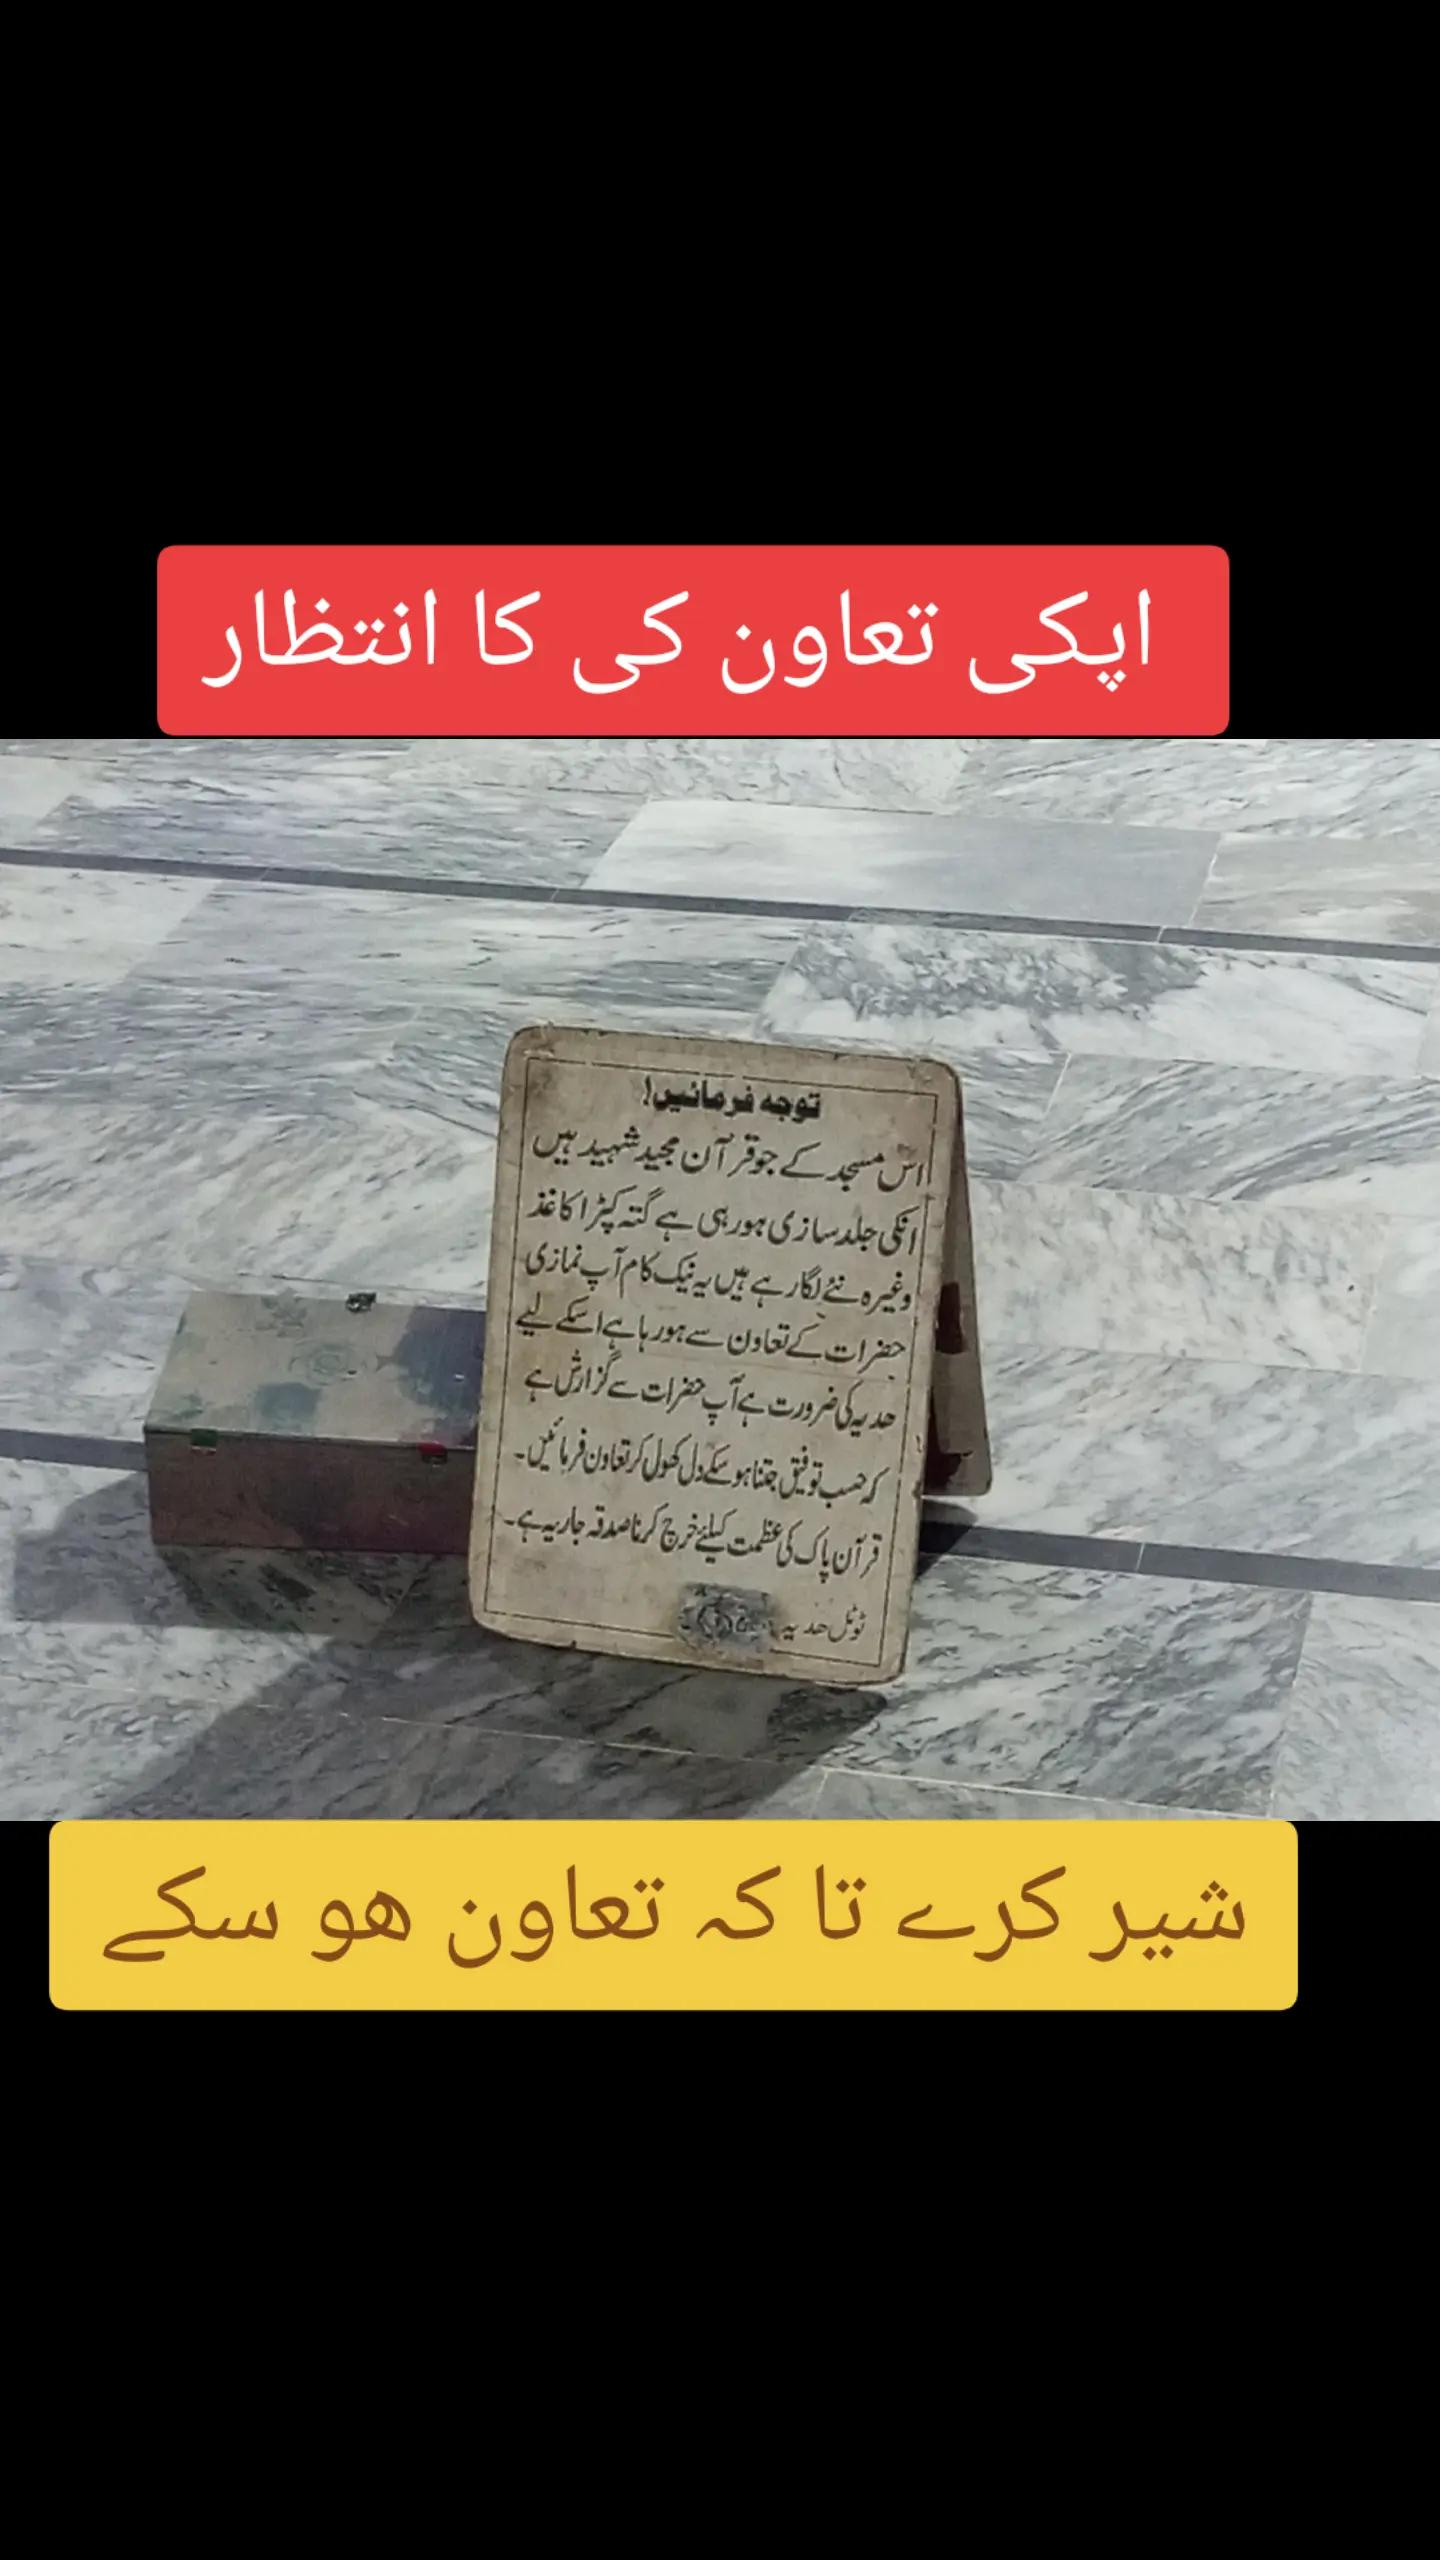 اپکی تعاون کی کا انتظار
توجہ فرمائیں!
اس مسجد کے جو قرآن مجید شہید ہیں
انکی جلد سازی ہو رہی ہے گتہ کپڑا کاغذ
وغیرہ نئے لگا رہے ہیں یہ نیک کام آپ نمازی
حضرات کے تعاون سے ہو رہا ہے اسکے لیے
ھدیہ کی ضرورت ہے آپ حضرات سے گزارش ہے
کہ حسب توفیق جتنا ہو سکے دل کھول کر تعاون فرمائیں۔
قرآن پاک کی عظمت کیلئے خرچ کرنا صدقہ جاریہ ہے۔
ٹوٹل ھدیہ
شیر کرے تا کہ تعاون ھو سکے